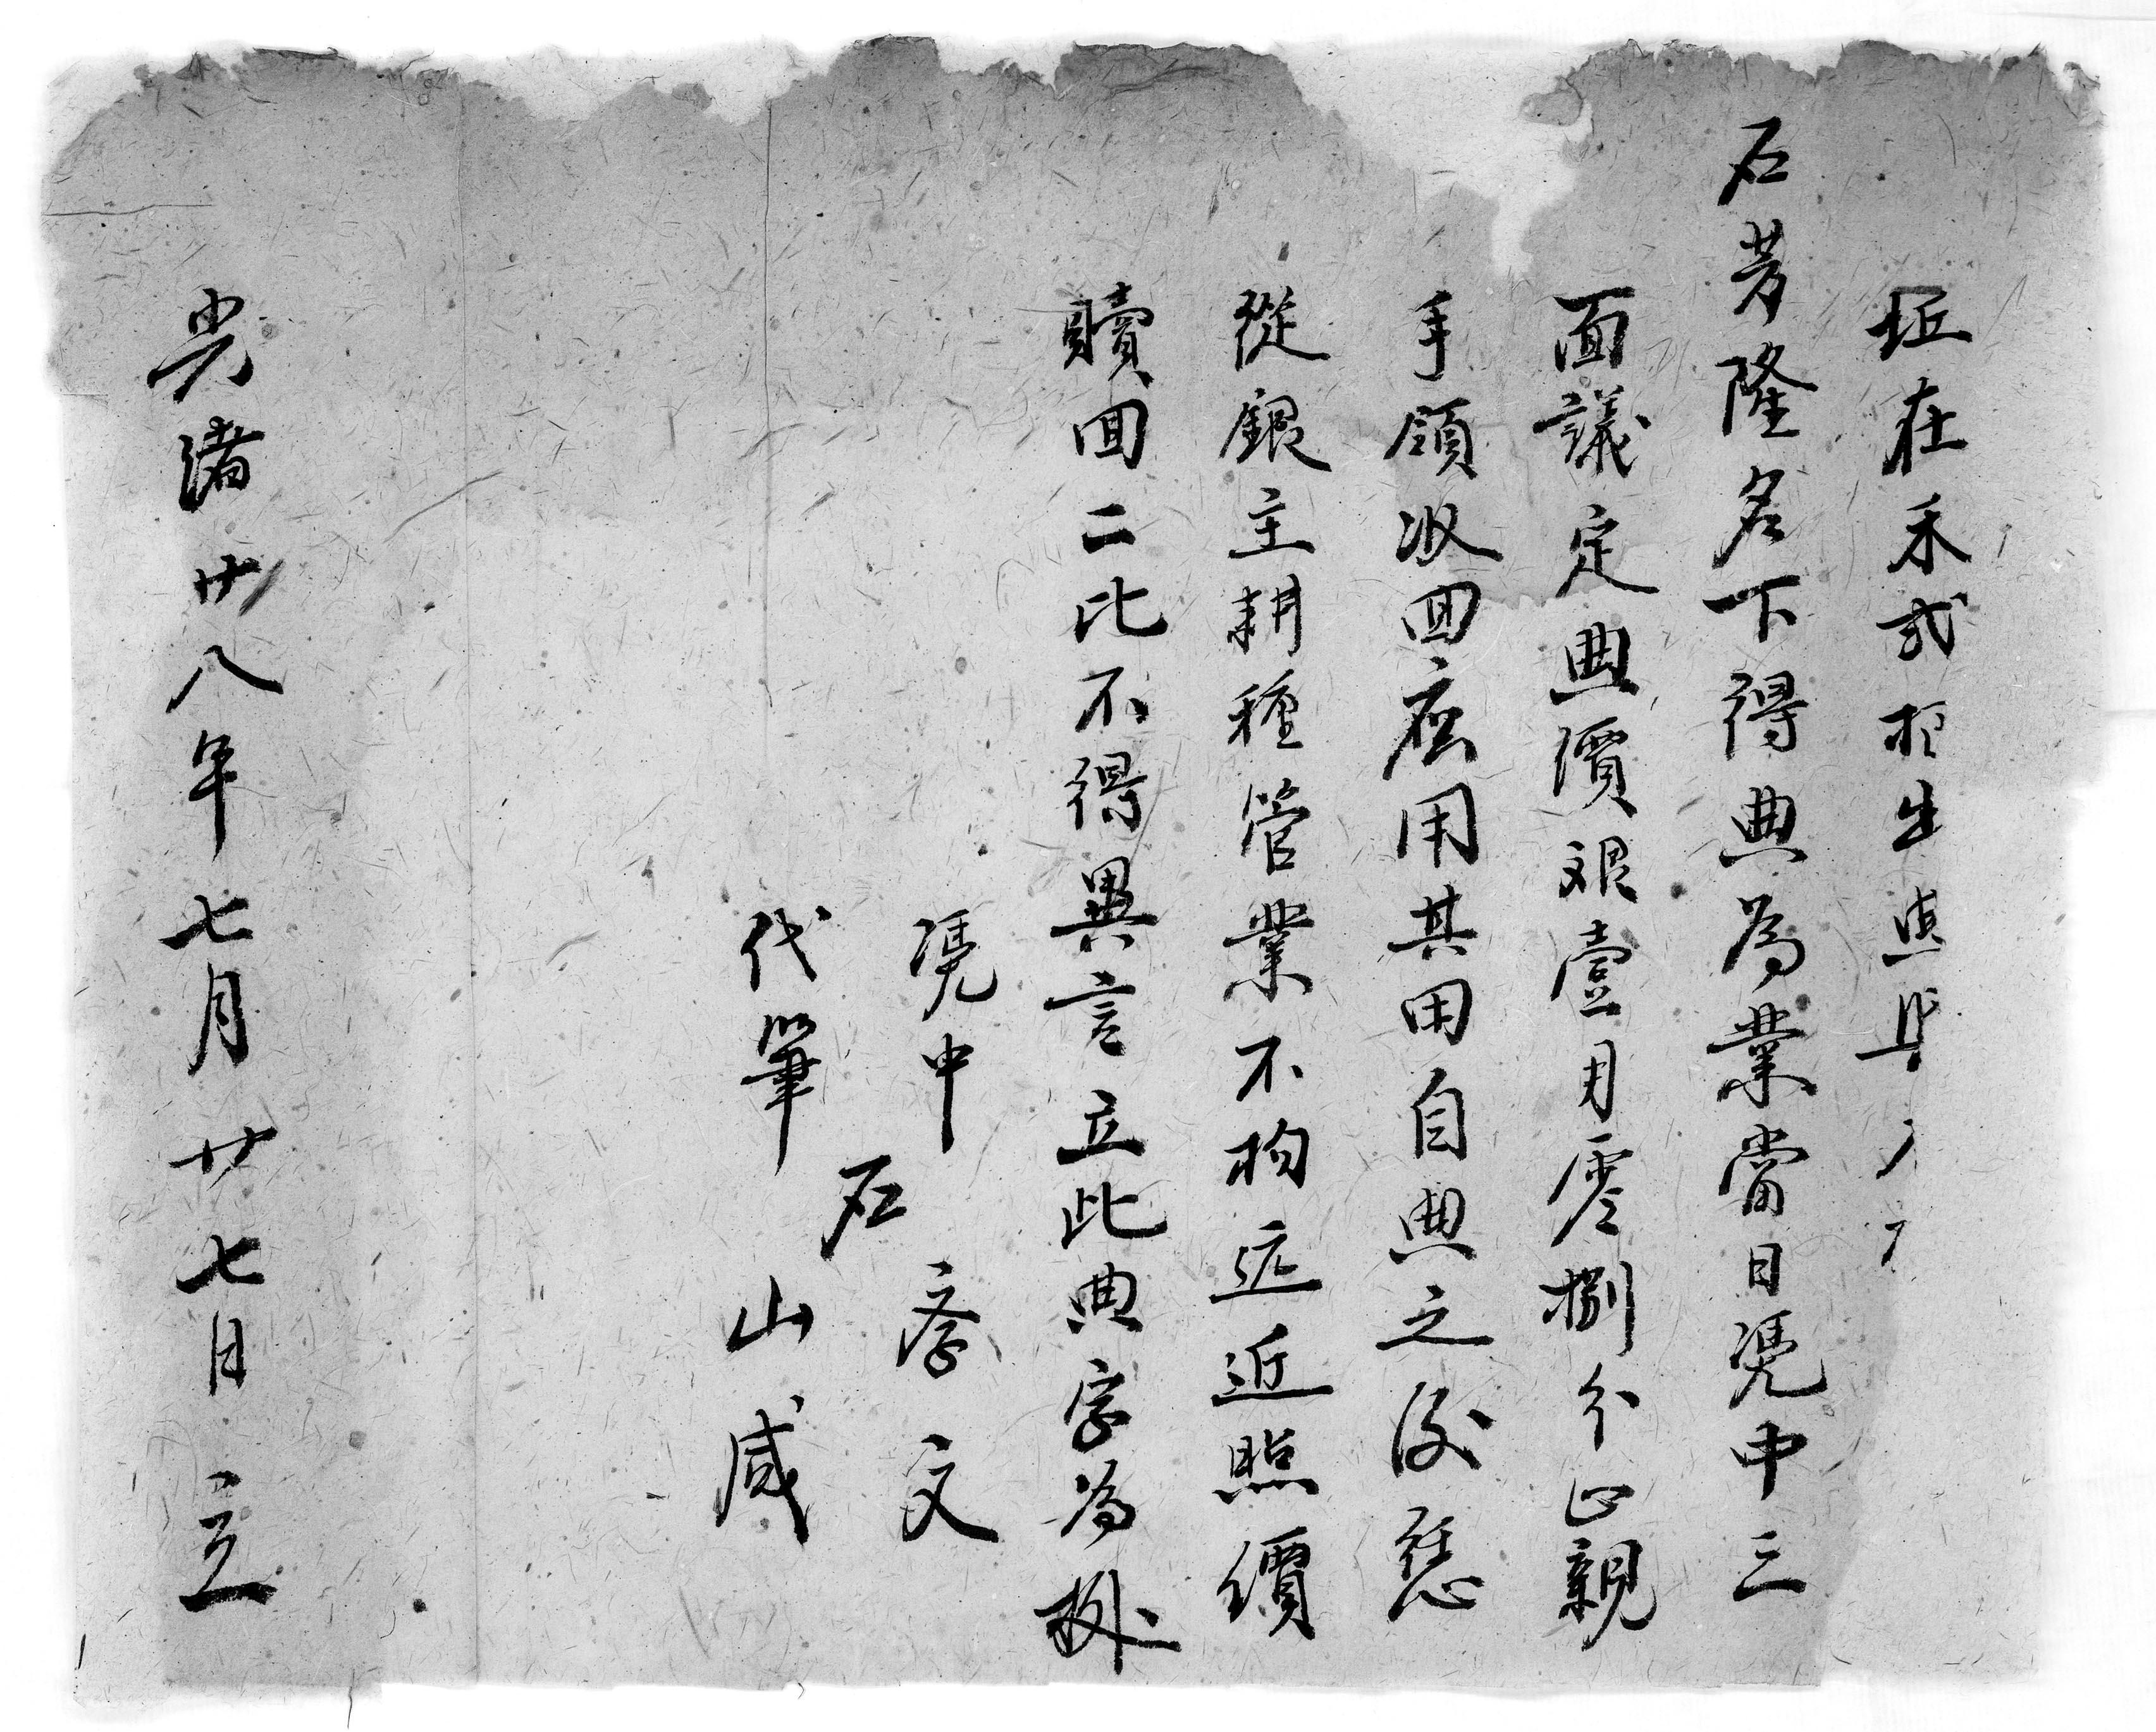 坵在禾弍担出典與
石芳隆名下得典為業當日凴中三
面議定典價艮壹月零捌分正親
手領收回應用其田自典之後慿
從銀主耕種管業不拘遠近照價
贖回二比不得異言立此典字為拠
凴中 石 文
代筆 山咸
光绪廿八年七月廿七日立